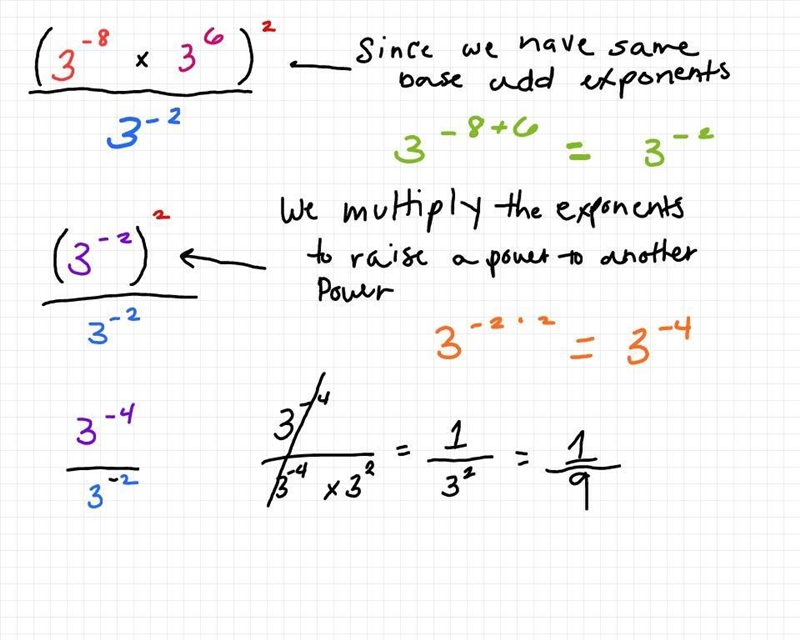 (3⁻⁸ x 3⁶)²
3⁻²
Since we have same
base add exponents
3⁻⁸⁺⁶ = 3⁻²
(3⁻²)²
3⁻²
We multiply the exponents
to raise a power to another
Power
3⁻²·² = 3⁻⁴
3⁻⁴
3⁻²
3⁻⁴
3⁻⁴ x 3²
= 1/3² = 1/9